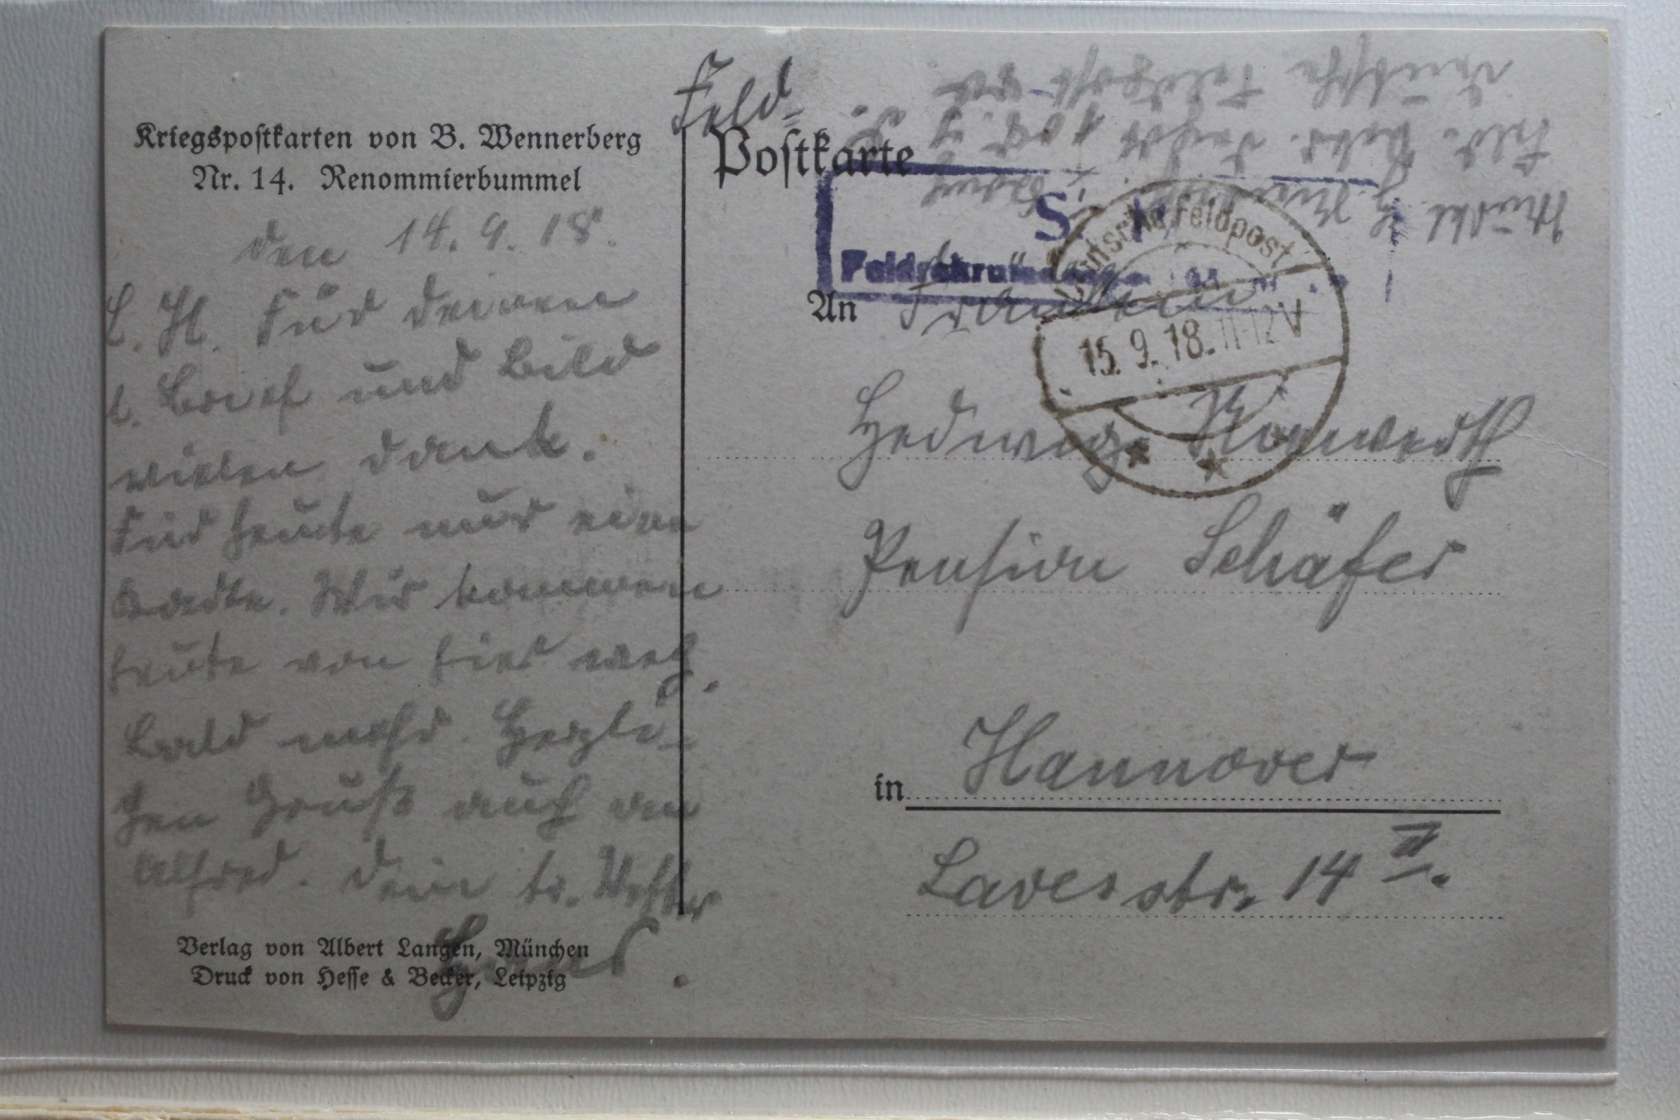 Kriegspostkarten von B. Wennerberg
Nr. 14. Renommierbummel
den 14. 9. 18.
L. H. Für deinen
l. Brief und Bild
vielen dank.
Für heute nur eine
Karte. Wir kommen
heute von hier weg.
Bald mehr. Herzli-
chen Gruß auch an
Alfred. Dein tr. Vetter
Hans.
Verlag von Albert Langen, München
Druck von Hesse & Becker, Leipzig
Feld-
Postkarte
S.
Deutsche Feldpost
15. 9. 18. 11-12 V
An Fräulein
Hedwig
Pension Schäfer
in Hannover
Lavesstr. 14 II.